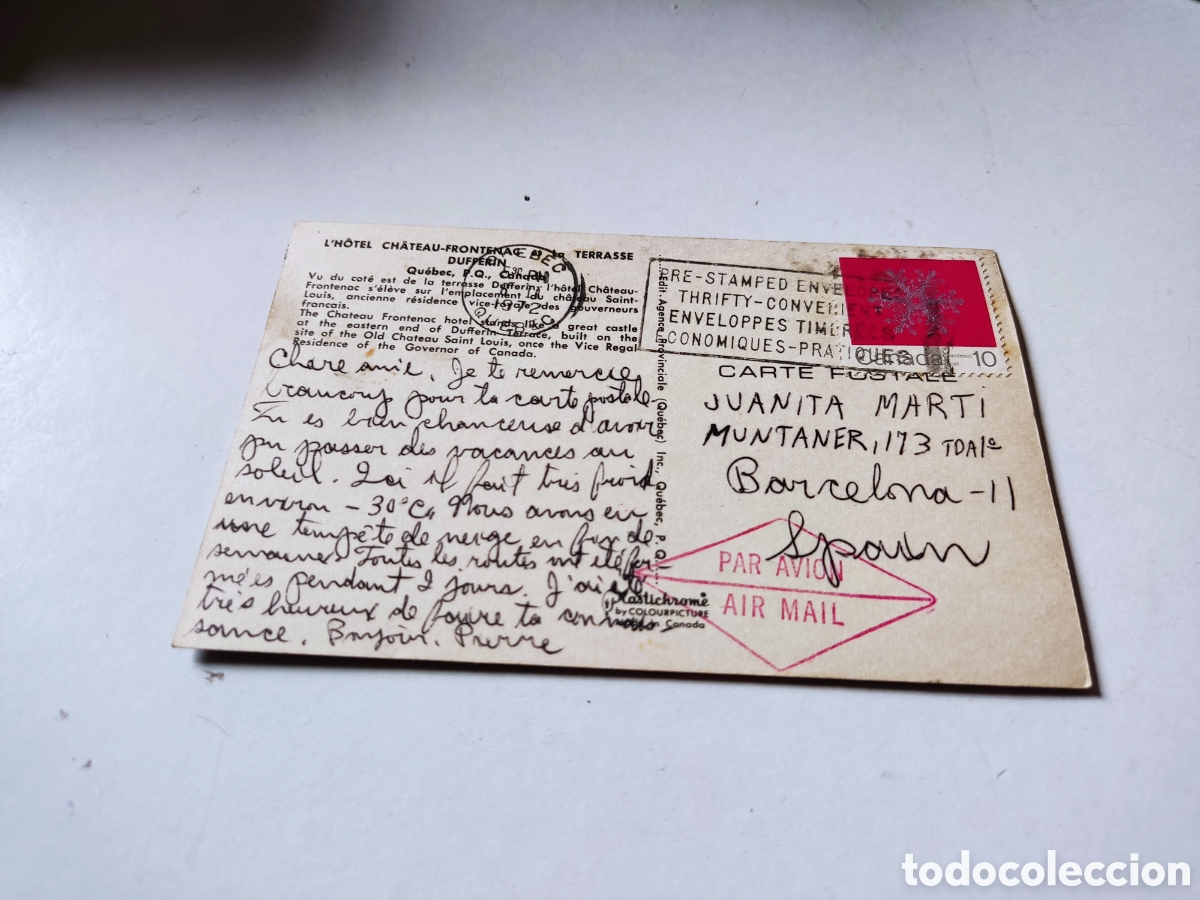 L'HÔTEL CHÂTEAU-FRONTENAC et la TERRASSE
DUFFERIN
Québec, P.Q., Canada
Vu du coté est de la terrasse Dufferin, l'hôtel Château-
Frontenac s'élève sur l'emplacement du château Saint-
Louis, ancienne résidence vice-royale des gouverneurs
francais.
The Chateau Frontenac hotel stands like a great castle
at the eastern end of Dufferin Terrace, built on the
site of the Old Chateau Saint Louis, once the Vice Regal
Residence of the Governor of Canada.
Chare amie, Je te remercie
beaucoup pour ta carte postale.
Tu es bien chanceuse d'avoir
pu passer des vacances au
soleil. Ici il fait très froid
environ -30°C. Nous avons eu
une tempête de neige en fin de
semaine. Toutes les routes ont été fer
mées pendant 2 jours. J'ai été
très heureux de faire ta connais
sance. Bonjour. Pierre
Edit. Agence Provinciale (Québec) Inc., Québec, P. Q.
Plastichrome
by COLOURPICTURE
in Canada
QUEBEC
PM
1972
QUEBEC
PRE-STAMPED ENVELOPES
THRIFTY-CONVENIENT
ENVELOPPES TIMBRÉES
ECONOMIQUES-PRATIQUES
Canada 10
CARTE POSTALE
JUANITA MARTI
MUNTANER, 173
Barcelona-11
Spain
PAR AVION
AIR MAIL
todocoleccion